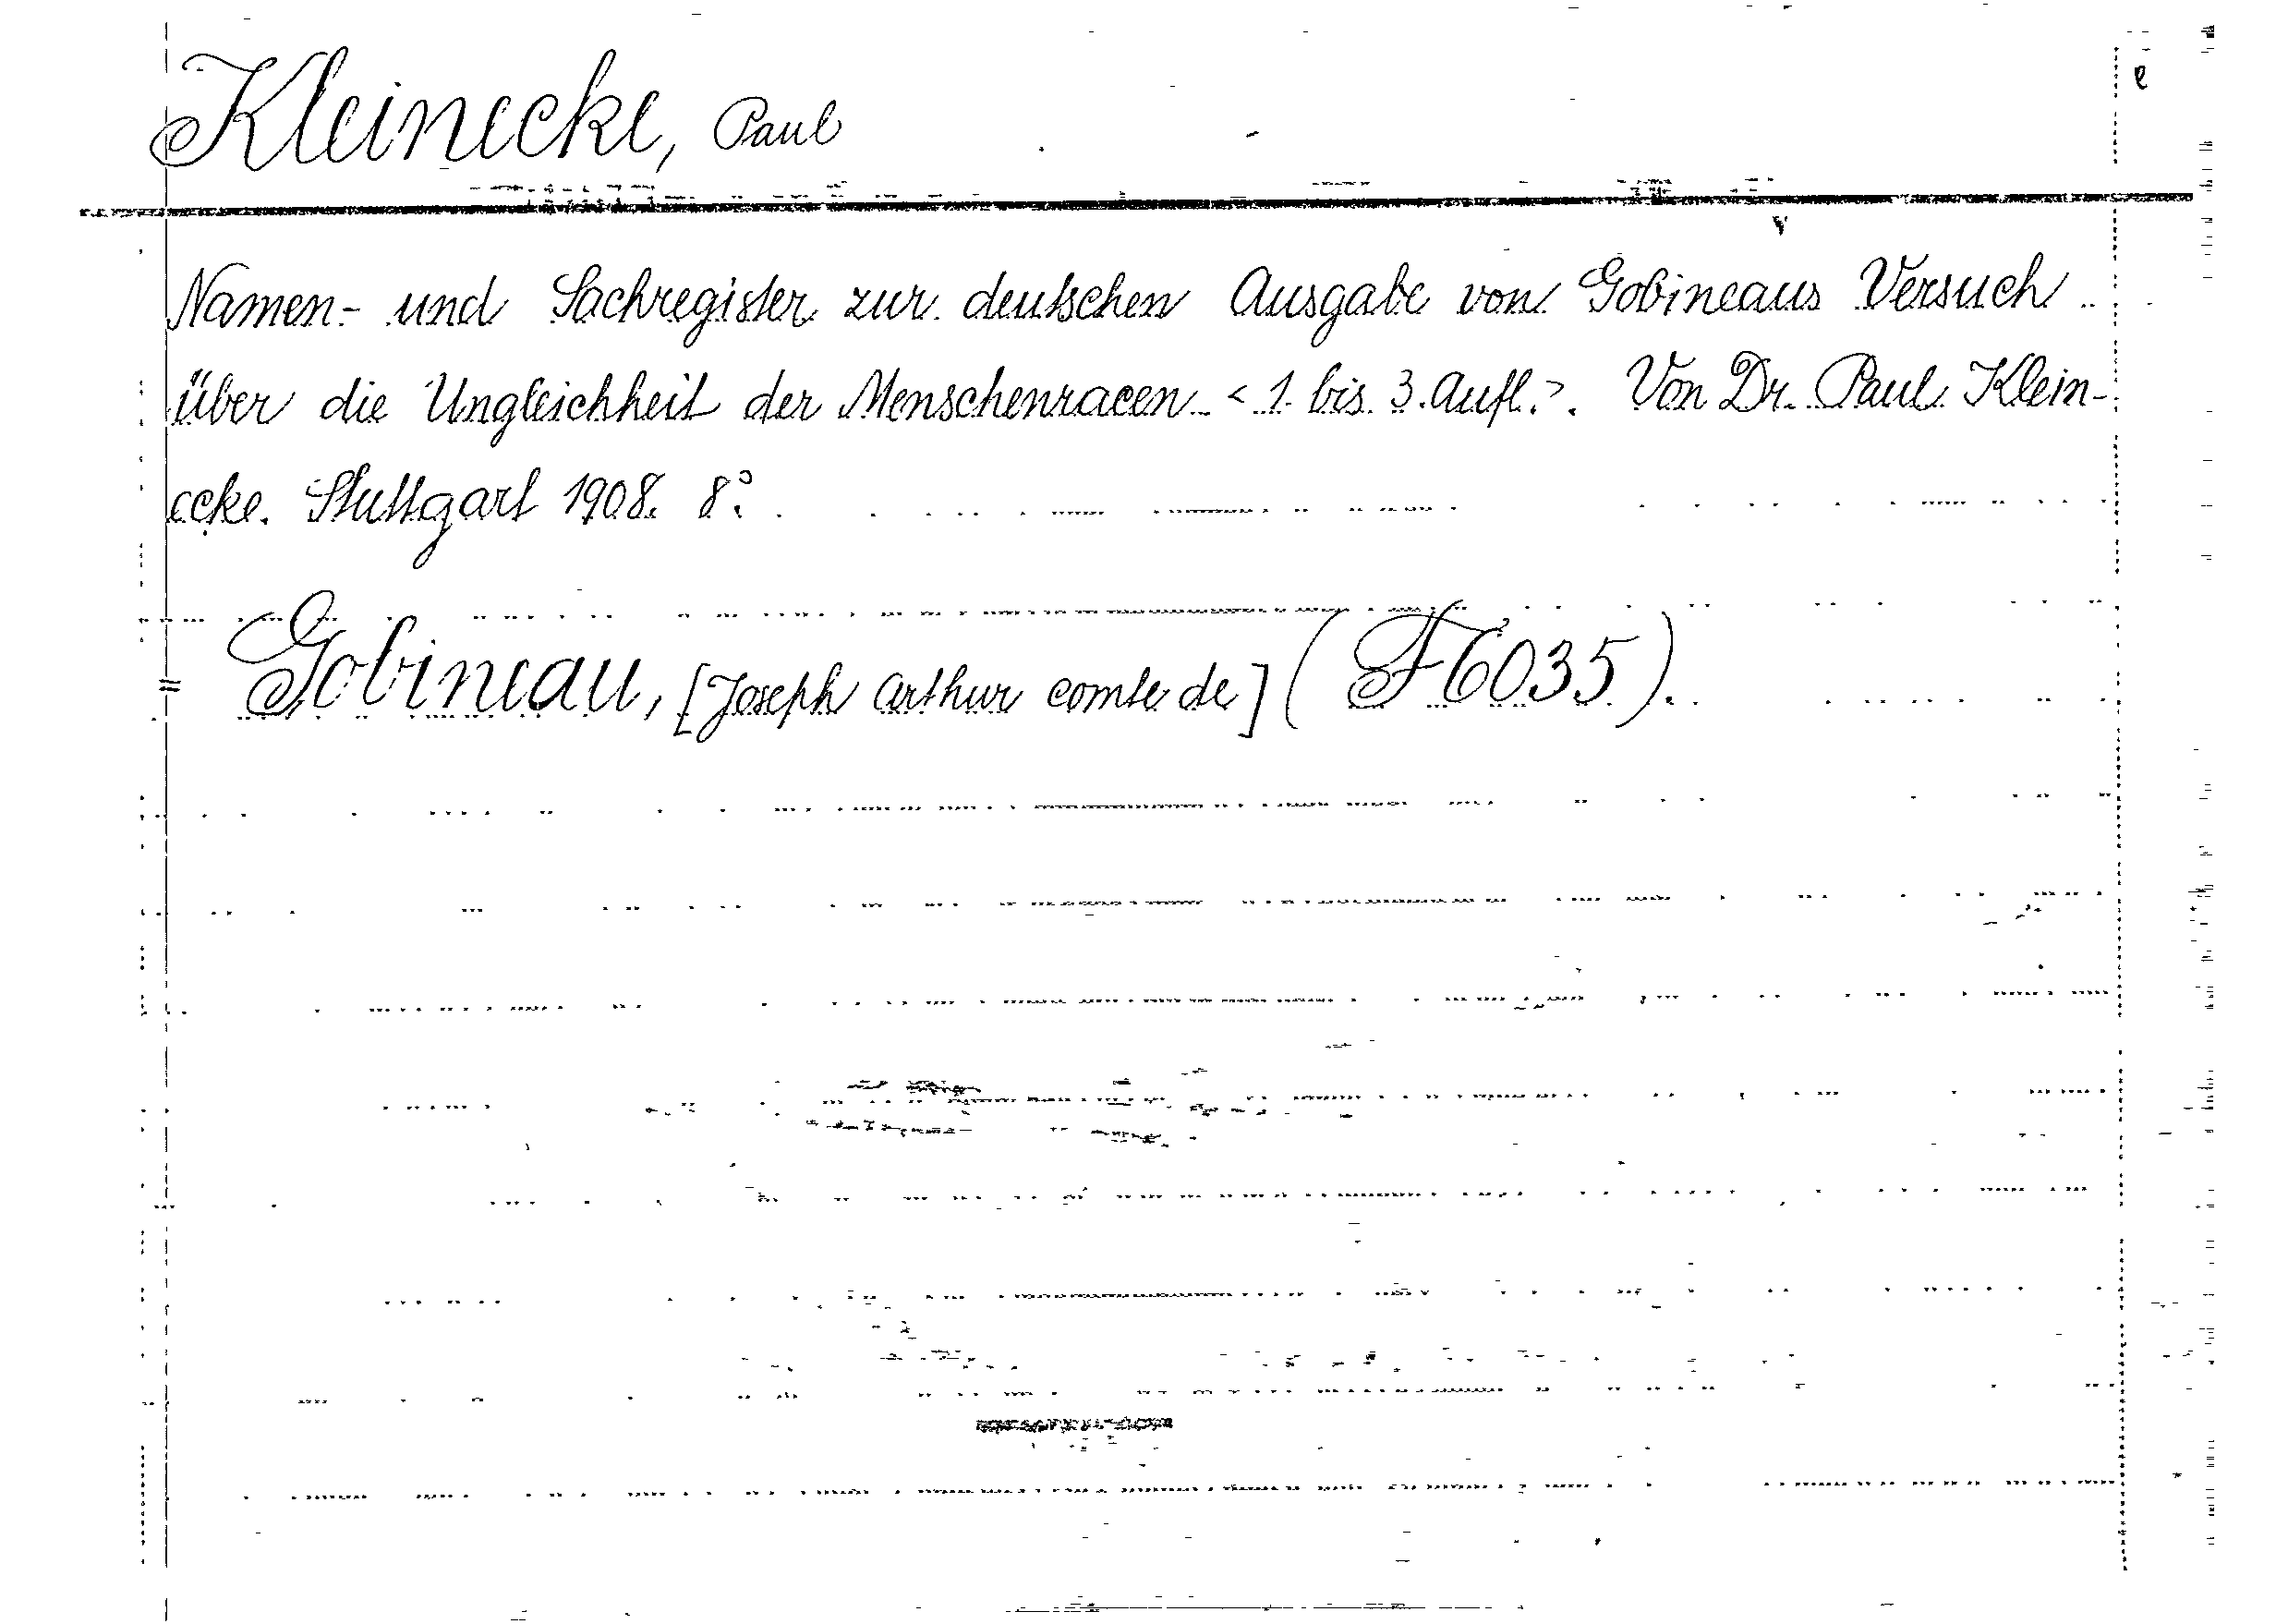 Kleinecke, Paul
Namen- und Sachregister zur deutschen Ausgabe von Gobineaus Versuch
über die Ungleichheit der Menschenracen < 1. bis 3. Aufl.>. Von Dr. Paul Klein-
ecke. Stuttgart 1908. 8°.
= Gobineau, [Joseph Arthur comte de] (F6035).